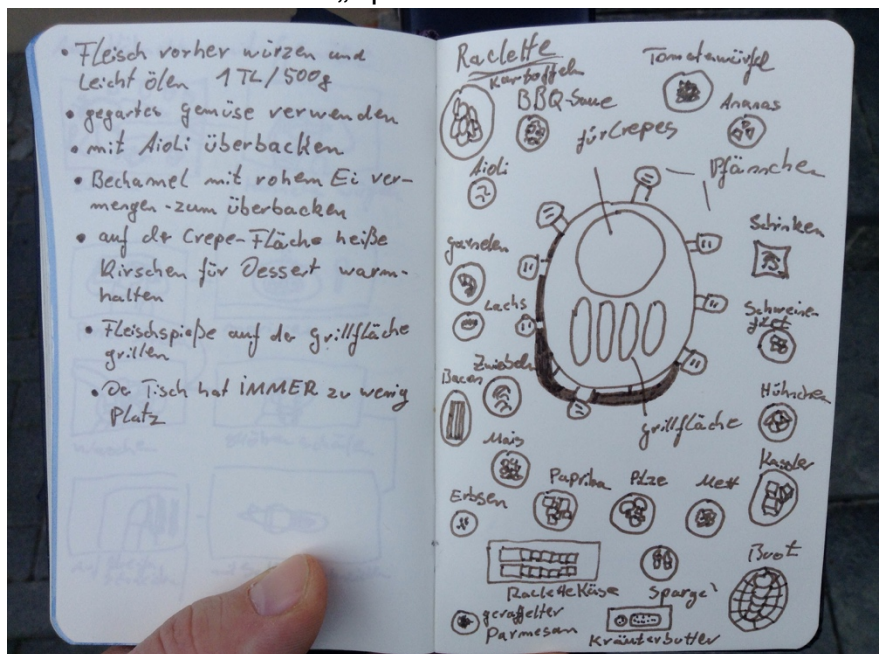 • Fleisch vorher würzen und
Leicht ölen 1TL/500g
• gegartes Gemüse verwenden
• mit Aioli überbacken
• Bechamel mit rohem Ei ver-
mengen - zum überbacken
• auf der Crepe-Fläche heiße
Kirschen für Dessert warm-
halten
• Fleischspieße auf der Grillfläche
grillen
• Der Tisch hat IMMER zu wenig
Platz
Raclette
Kartoffeln
Tomatenwürfel
BBQ-Sauce
Ananas
für Crepes
Aioli
Pfännchen
Schinken
Garnelen
Lachs
Schweine-
filet
Zwiebeln
Bacon
Hühnchen
Grillfläche
Mais
Kassler
Paprika
Pilze
Mett
Erbsen
Brot
Raclette Käse
Spargel
geraffelter
Parmesan
Kräuterbutter